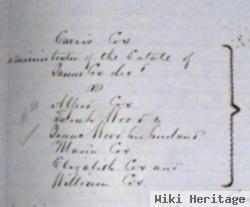 Cox
administrator of the Estate of
James Cox decd
vs
Alfred Cox
Sarah Wood &
Isaac Wood her husband
Maria Cox
Elizabeth Cox and
William Cox
Wiki Heritage